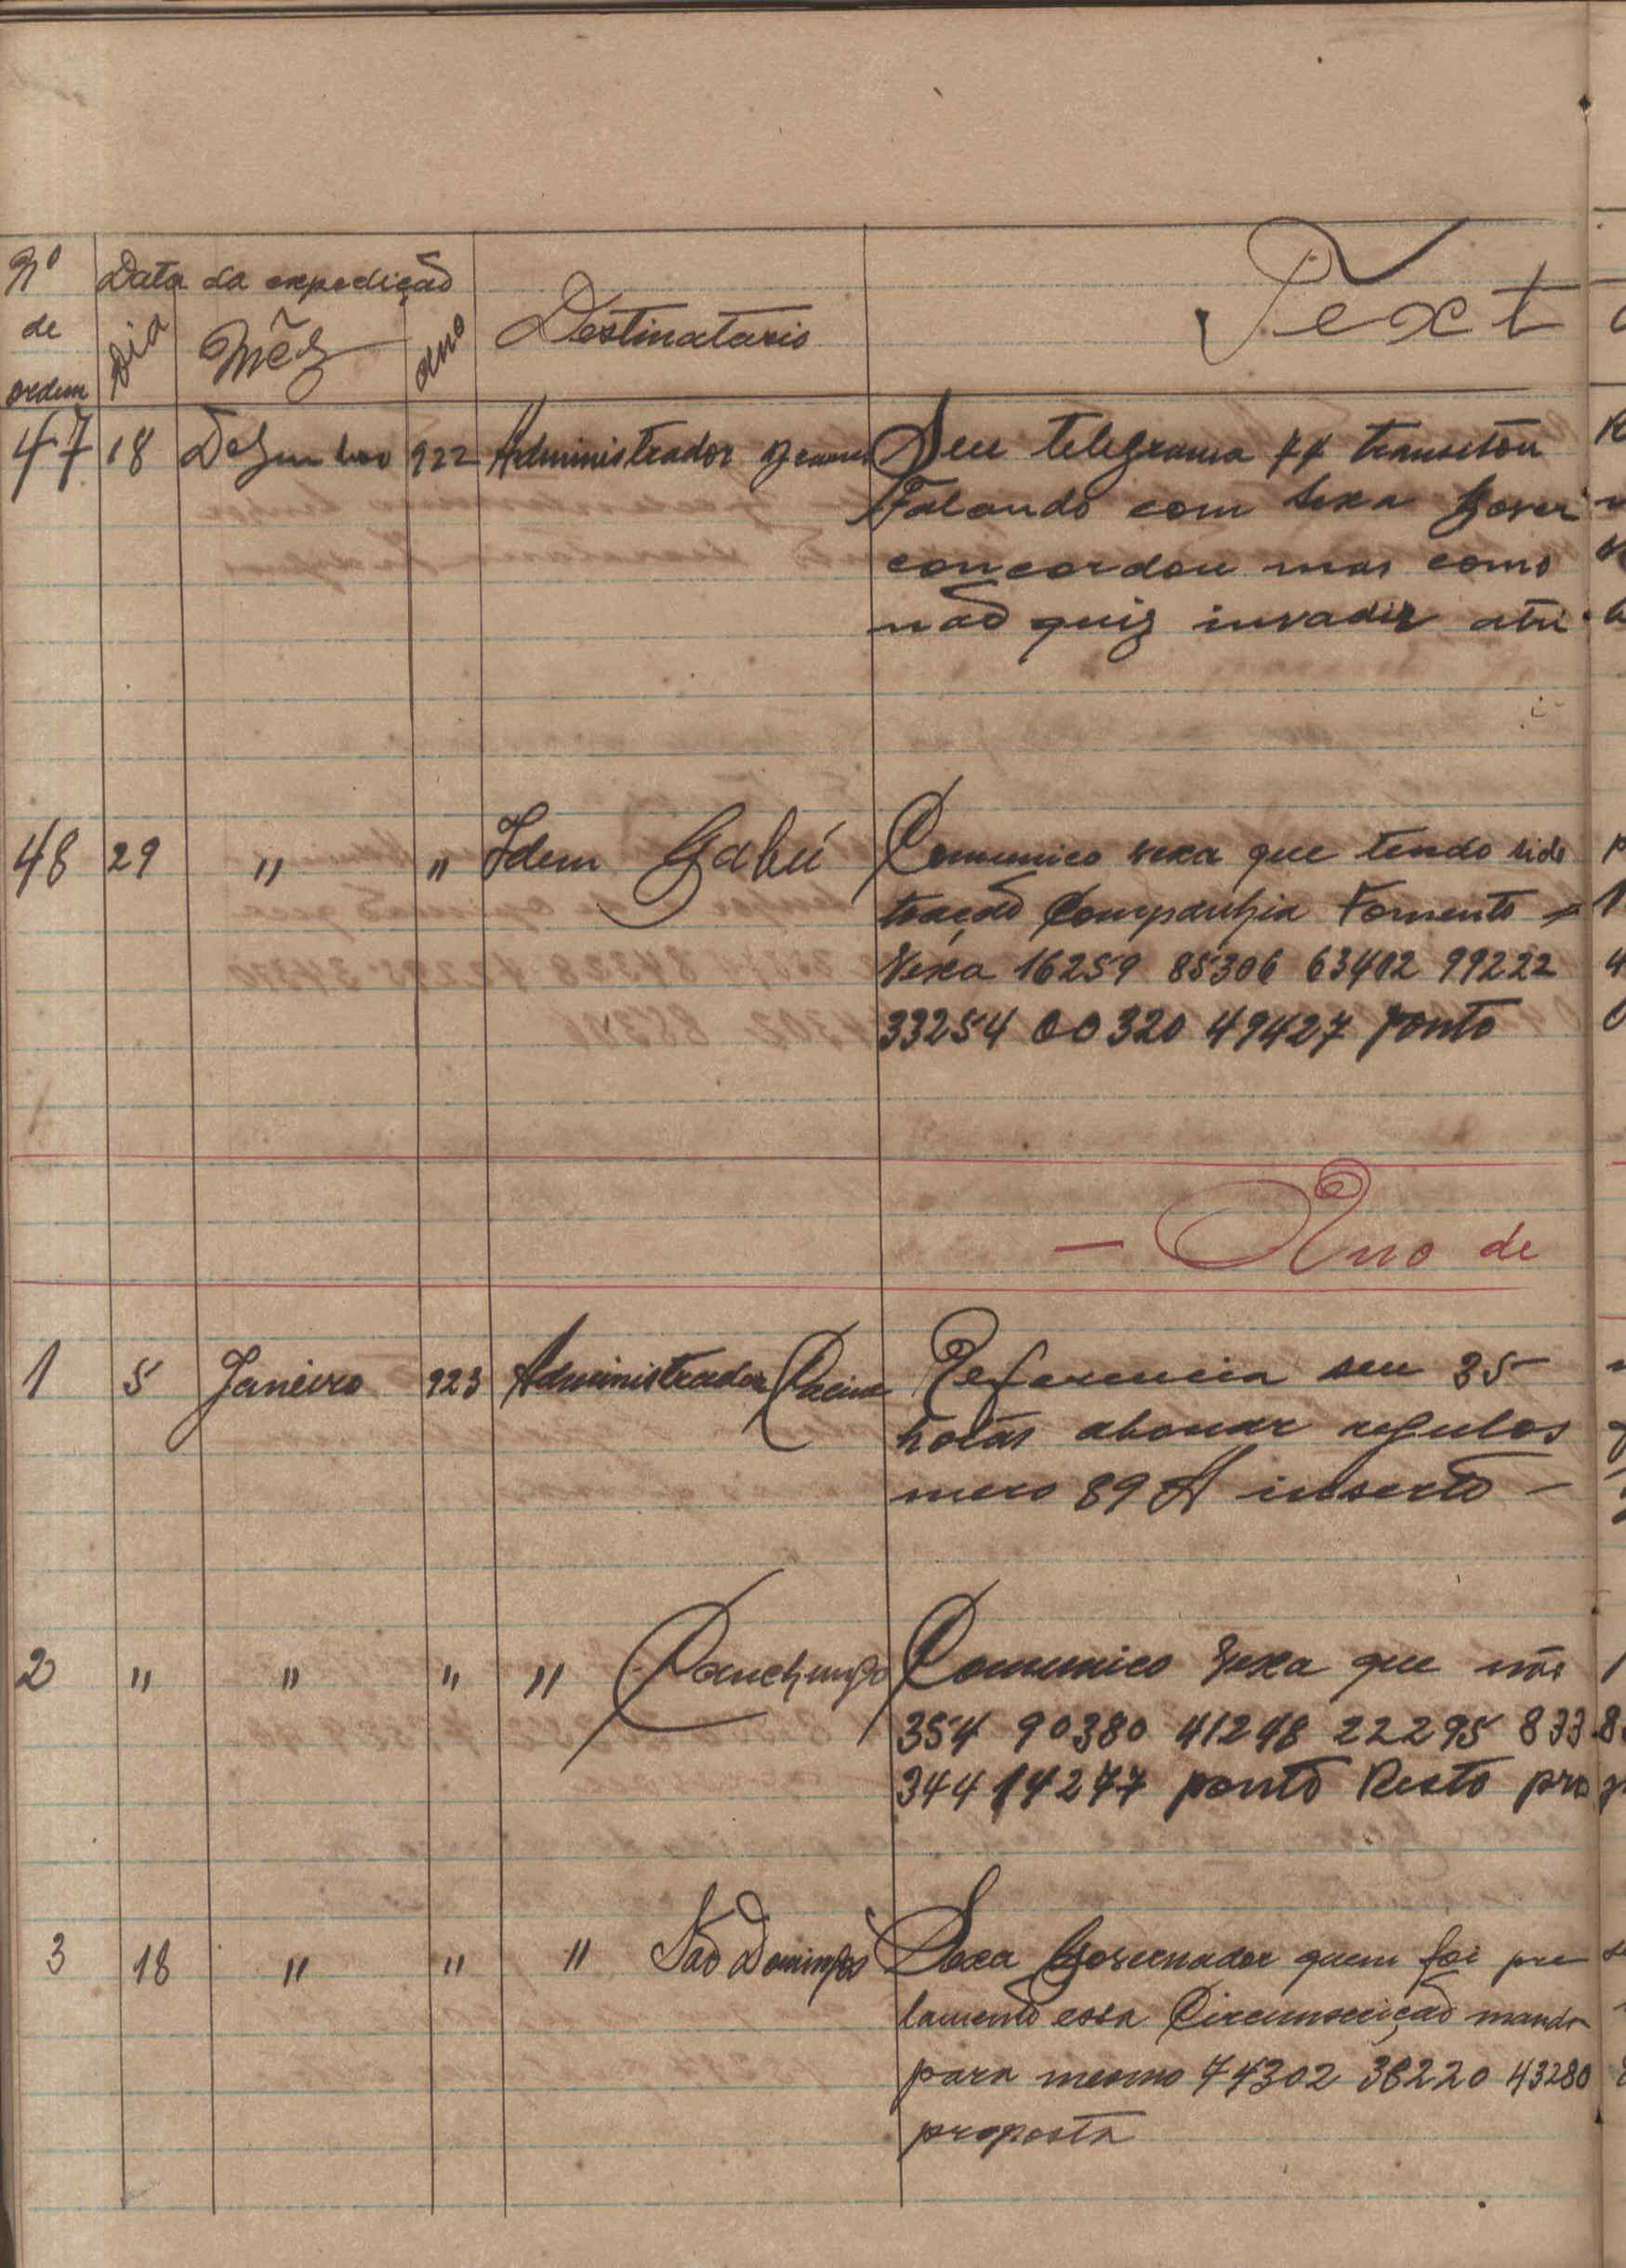 Nº de ordem
Data da expedição
Dia Mês ano
Destinatario
Text
47 18 Dezembro 922 Administrador Seu telegrama 77 transitou
Falando com sexa Gover
concordou mas como
não quiz invadir atri
48 29 " " Idem Gabú Comunico vexa que tendo sido
tração Companhia Fomento
Vexa 16259 85306 63402 99222
33254 00320 49427 ponto
— Ano de
1 5 Janeiro 923 Administrador Cacine Referencia seu 35
notas abonar regulos
mero 89 A inserto —
2 " " " " Canchungo Comunico Vexa que
354 90380 41248 22295 833
344 14277 ponto Resto pro
3 18 " " " São Domingos Sexa Governador quem foi pre
lamento essa Circunscrição manda
para mesmo 74302 38220 43280
proposta